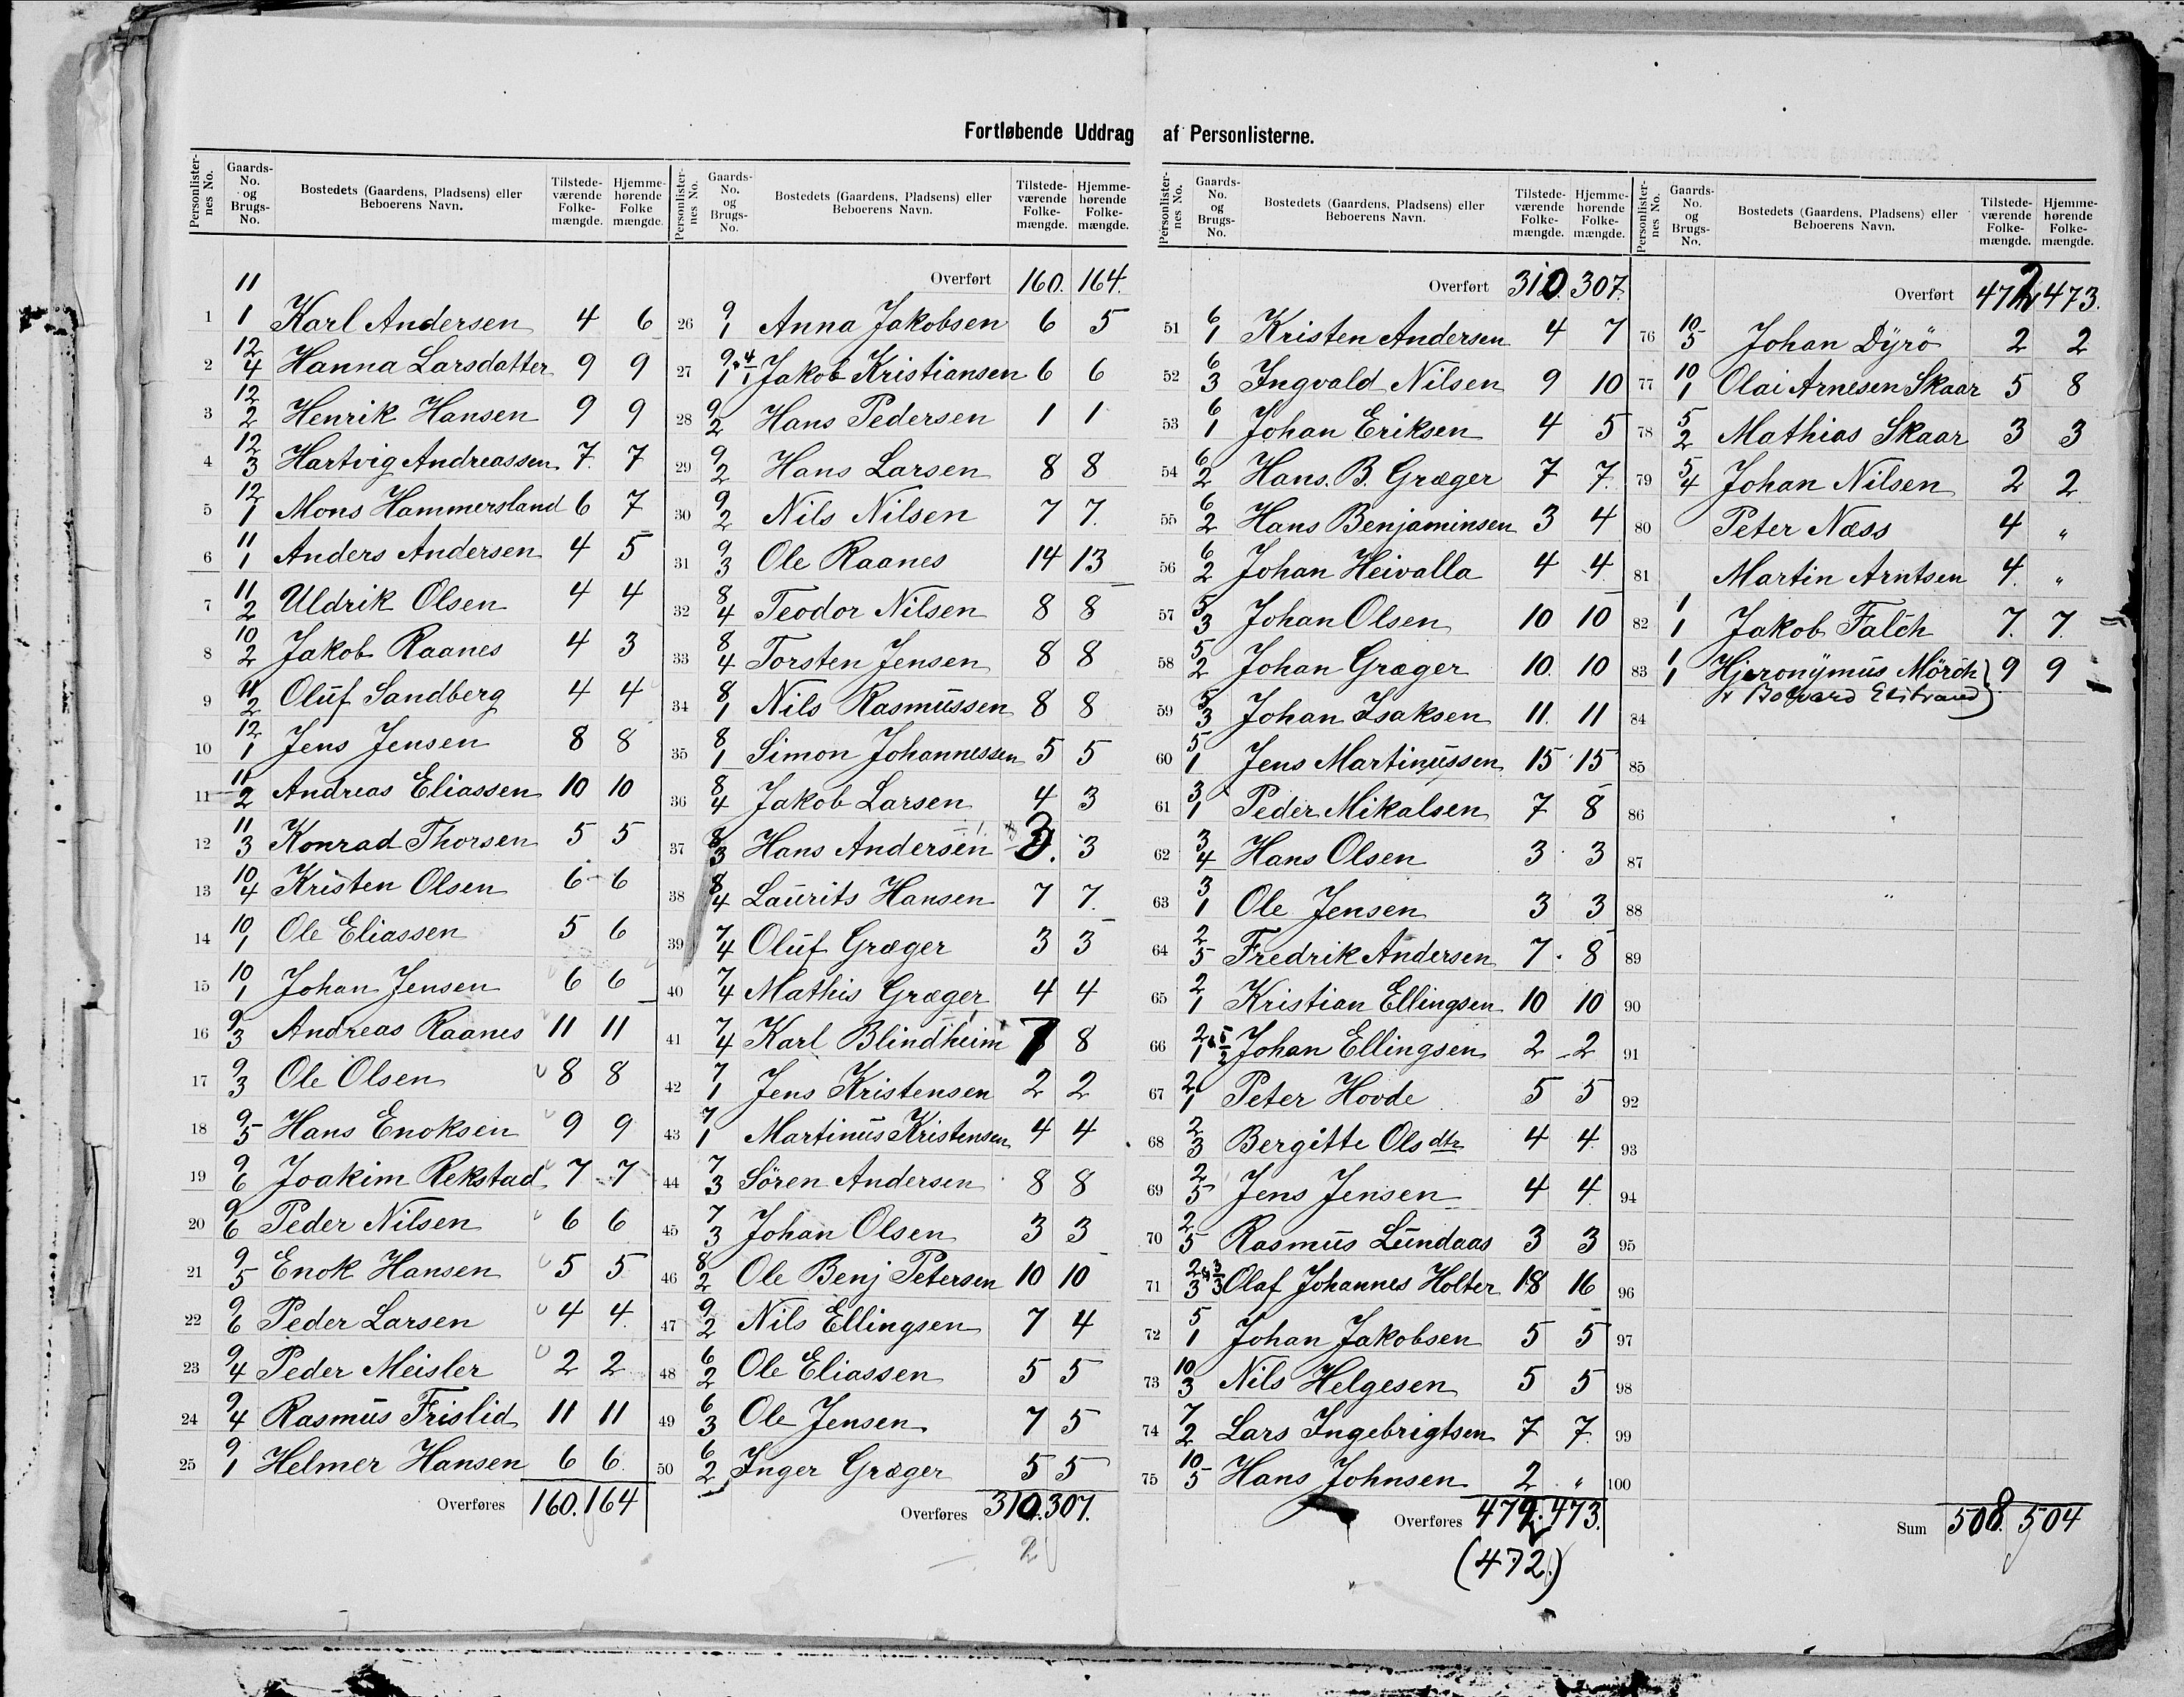 Fortløbende Uddrag af Personlisterne.
Personlister-nes No. | Gaards-No. og Brugs-No. | Bostedets (Gaardens, Pladsens) eller Beboerens Navn. | Tilstede-værende Folke-mængde. | Hjemme-hørende Folke mængde.
1 11/1 Karl Andersen 4 6
2 12/4 Hanna Larsdatter 9 9
3 12/2 Henrik Hansen 9 9
4 12/3 Hartvig Andreassen 7. 7
5 12/1 Mons Hammersland 6 7
6 11/1 Anders Andersen 4 5
7 11/2 Uldrik Olsen 4 4
8 10/2 Jakob Raanes 4 3
9 11/2 Oluf Sandberg 4 4
10 12/1 Jens Jensen 8 8
11 11/2 Andreas Eliassen 10 10
12 11/3 Konrad Thorsen 5 5
13 10/4 Kristen Olsen 6 6
14 10/1 Ole Eliassen 5 6
15 10/1 Johan Jensen 6 6
16 9/3 Andreas Raanes 11 11
17 9/3 Ole Olsen 8 8
18 9/5 Hans Enoksen 9 9
19 9/6 Joakim Rekstad 7 7
20 9/6 Peder Nilsen 6 6
21 9/5 Enok Hansen 5 5
22 9/6 Peder Larsen 4 4
23 9/4 Peder Meisler 2 2
24 9/4 Rasmus Frislid 11 11
25 9/1 Helmer Hansen 6 6
Overføres 160. 164
Personlister-nes No. | Gaards-No. og Brugs-No. | Bostedets (Gaardens, Pladsens) eller Beboerens Navn. | Tilstede-værende Folke-mængde. | Hjemme-hørende Folke-mængde.
Overført 160. 164.
26 9/1 Anna Jakobsen 6 5
27 9/1 & 4/1 Jakob Kristiansen 6 6
28 9/2 Hans Pedersen 1 1
29 9/2 Hans Larsen 8 8
30 9/2 Nils Nilsen 7 7.
31 9/3 Ole Raanes 14 13
32 8/4 Teodor Nilsen 8 8
33 8/4 Torsten Jensen 8 8
34 8/1 Nils Rasmussen 8 8
35 8/1 Simon Johannessen 5 5
36 8/4 Jakob Larsen 4 3
37 8/3 Hans Andersen 3. 3
38 8/4 Laurits Hansen 7 7.
39 7/4 Oluf Græger 3 3
40 7/4 Mathis Græger 4 4
41 7/4 Karl Blindheim 7 8
42 7/1 Jens Kristensen 2 2
43 7/1 Martinus Kristensen 4 4
44 7/3 Sören Andersen 8 8
45 7/3 Johan Olsen 3 3
46 8/2 Ole Benj Petersen 10 10
47 9/2 Nils Ellingsen 7 4
48 6/2 Ole Eliassen 5 5
49 6/3 Ole Jensen 7 5
50 6/2 Inger Græger 5 5
Overføres 310. 307.
2
Personlister-nes No. | Gaards-No. og Brugs-No. | Bostedets (Gaardens, Pladsens) eller Beboerens Navn. | Tilstede-værende Folke-mængde. | Hjemme-hørende Folke-mængde.
Overført 310. 307.
51 6/1 Kristen Andersen 4 7
52 6/3 Ingvald Nilsen 9 10
53 6/1 Johan Eriksen 4 5
54 6/2 Hans. B. Græger 7 7.
55 6/2 Hans Benjaminsen 3 4
56 6/2 Johan Heivalla 4 4
57 5/3 Johan Olsen 10 10
58 5/2 Johan Græger 10. 10
59 5/3 Johan Isaksen 11. 11
60 5/1 Jens Martinussen 15 15
61 3/1 Peder Mikalsen 7 8
62 3/4 Hans Olsen 3 3
63 3/1 Ole Jensen 3 3
64 2/5 Fredrik Andersen 7 8
65 2/1 Kristian Ellingsen 10 10
66 2/1 & 5/2 Johan Ellingsen 2 2
67 2/1 Peter Hovde 5 5
68 2/3 Bergitte Olsdtr 4 4
69 2/5 Jens Jensen 4 4
70 2/5 Rasmus Lundaas 3 3
71 2/3 & 3/3 Olaf Johannes Holter 18 16
72 5/1 Johan Jakobsen 5 5
73 10/3 Nils Helgesen 5 5
74 7/2 Lars Ingebrigtsen 7 7.
75 10/5 Hans Johnsen 2 "
Overføres 472. 473.
(472)
Personlister-nes No. | Gaards-No. og Brugs-No. | Bostedets (Gaardens, Pladsens) eller Beboerens Navn. | Tilstede-værende Folke-mængde. | Hjemme-hørende Folke-mængde.
Overført 472 473.
76 10/5 Johan Dyrö 2 2
77 10/1 Olai Arnesen Skaar 5 8
78 5/2 Mathias Skaar 3 3
79 5/4 Johan Nilsen 2 2
80 Peter Næss 4 "
81 Martin Arntsen 4. "
82 1/1 Jakob Falch 7. 7.
83 1/1 Hjeronymus Mörch 9 9
84
85
86
87
88
89
90
91
92
93
94
95
96
97
98
99
100
Sum 508. 504